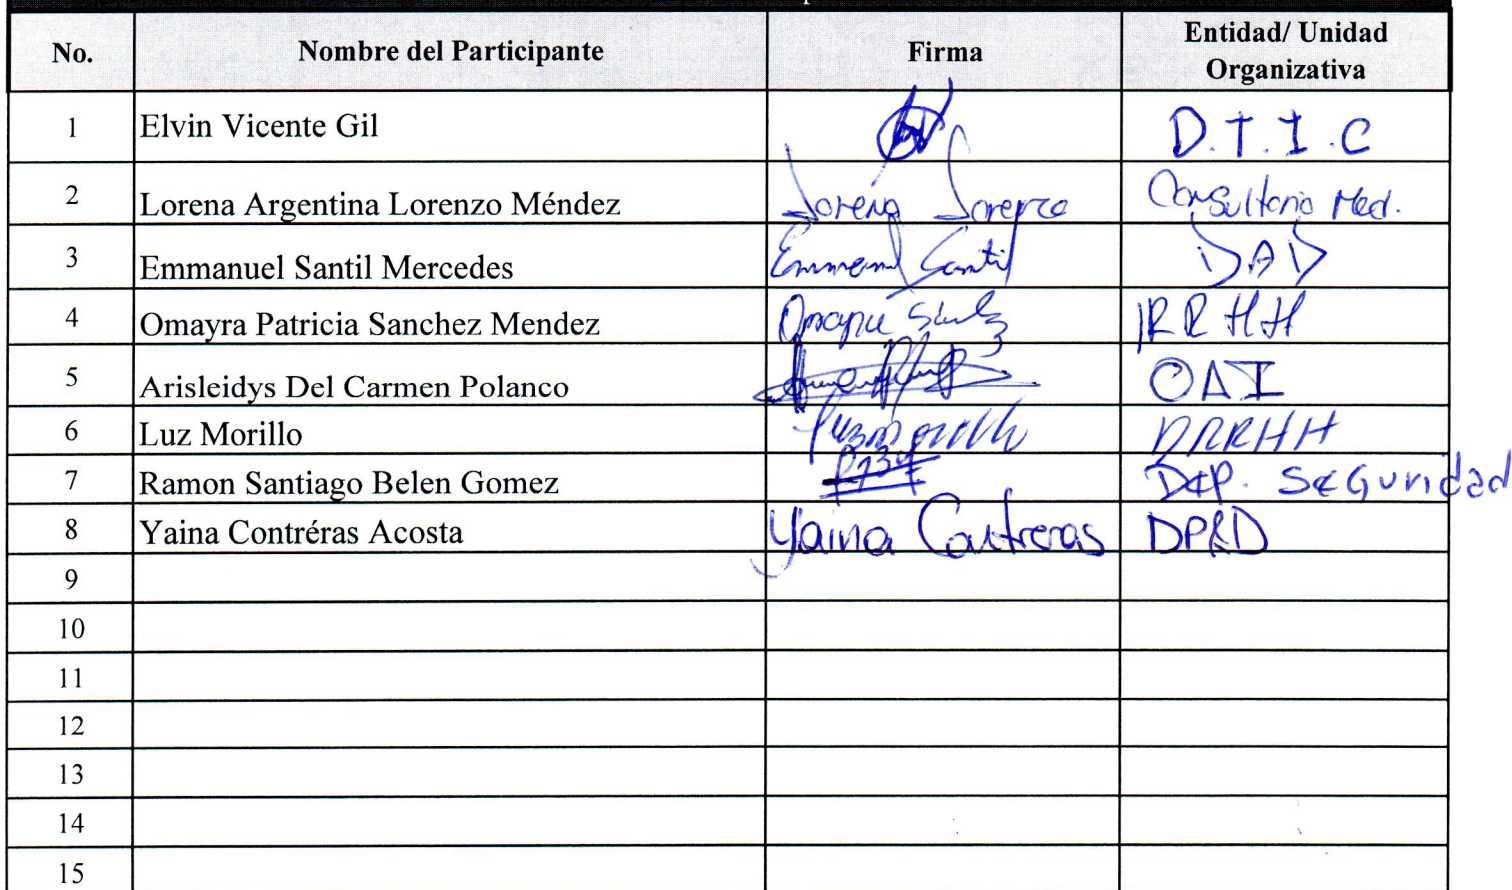 No. Nombre del Participante Firma Entidad/ Unidad Organizativa
1 Elvin Vicente Gil D.T.I.C
2 Lorena Argentina Lorenzo Méndez Lorena Lorenzo Consultorio Med.
3 Emmanuel Santil Mercedes Emmanuel Santil DAD
4 Omayra Patricia Sanchez Mendez RRHH
5 Arisleidys Del Carmen Polanco OAI
6 Luz Morillo Luz Morillo DRRHH
7 Ramon Santiago Belen Gomez Dep. Seguridad
8 Yaina Contréras Acosta Yaina Contreras
9
10
11
12
13
14
15